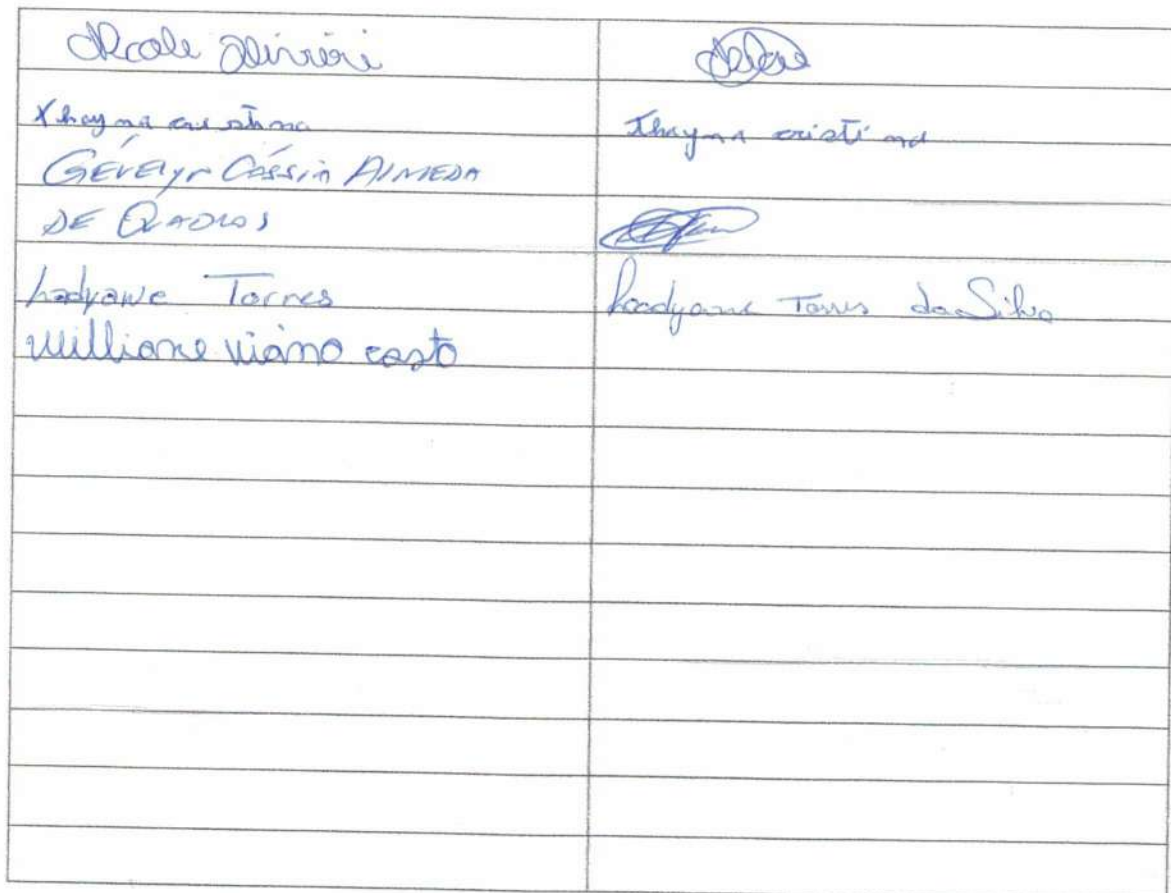 Nicole Olivieri
Thayna cristina Thayna cristina
GÉVElyn Cássia AlMEDA
DE QUADROS
Ladyane Torres Leadyane Torres da Silva
Williane Viana